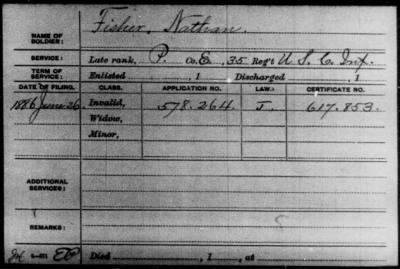 NAME OF SOLDIER: Fisher, Nathan.
SERVICE: Late rank, P. Co. E, 35 Reg't U. S. C. Inf.
TERM OF SERVICE: Enlisted , 1 Discharged , 1
DATE OF FILING. CLASS. APPLICATION NO. LAW. CERTIFICATE NO.
1886 June 26 Invalid, 578.264 J. 617.853.
Widow,
Minor,
ADDITIONAL SERVICES:
REMARKS:
Died , 1 , at